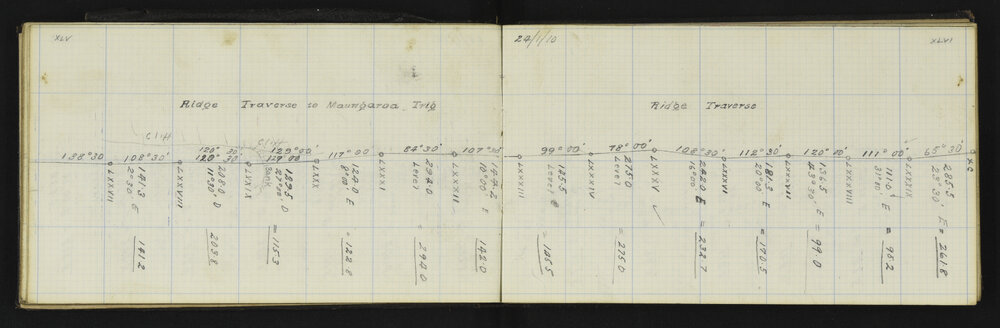 XLV
24/1/10
XLVI
Ridge Traverse to Maungaroa Trig
Ridge Traverse
Cliff
Cliff
138°30
108°30'
120° 30'
120° 30'
129°00'
129°00
117°00
84°30'
107°30'
99°00'
78°00'
108°30'
112°30'
120°00'
111°00'
65°30'
LXXVII
141.3
2°30 E
141.2
LXXVIII
208.0 D
11°30'
203.8
LXXIX
Bank
129.5 D
27°00'
= 115.3
LXXX
124.0 E
8°00'
= 122.8
LXXXI
294.0
Level
= 294.0
LXXXII
144.2 E
10°00'
142.0
LXXXIII
185.5
Level
= 185.5
LXXXIV
275.0
Level
= 275.0
LXXXV
242.0 E
16°00'
= 232.7
LXXXVI
181.5 E
20°00'
= 170.5
LXXXVII
136.5 E
43°30'
= 99.0
LXXXVIII
111.0 E
31°10'
= 95.2
LXXXIX
285.5 E
23°30'
= 261.8
XC